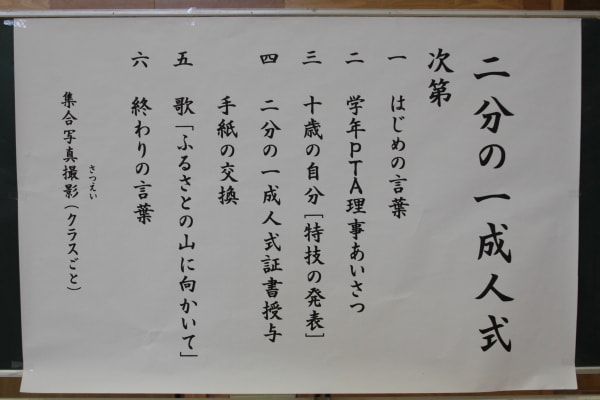 二分の一成人式
次第
一　はじめの言葉
二　学年PTA理事あいさつ
三　十歳の自分［特技の発表］
四　二分の一成人式証書授与
手紙の交換
五　歌「ふるさとの山に向かいて」
六　終わりの言葉
さつえい
集合写真撮影（クラスごと）